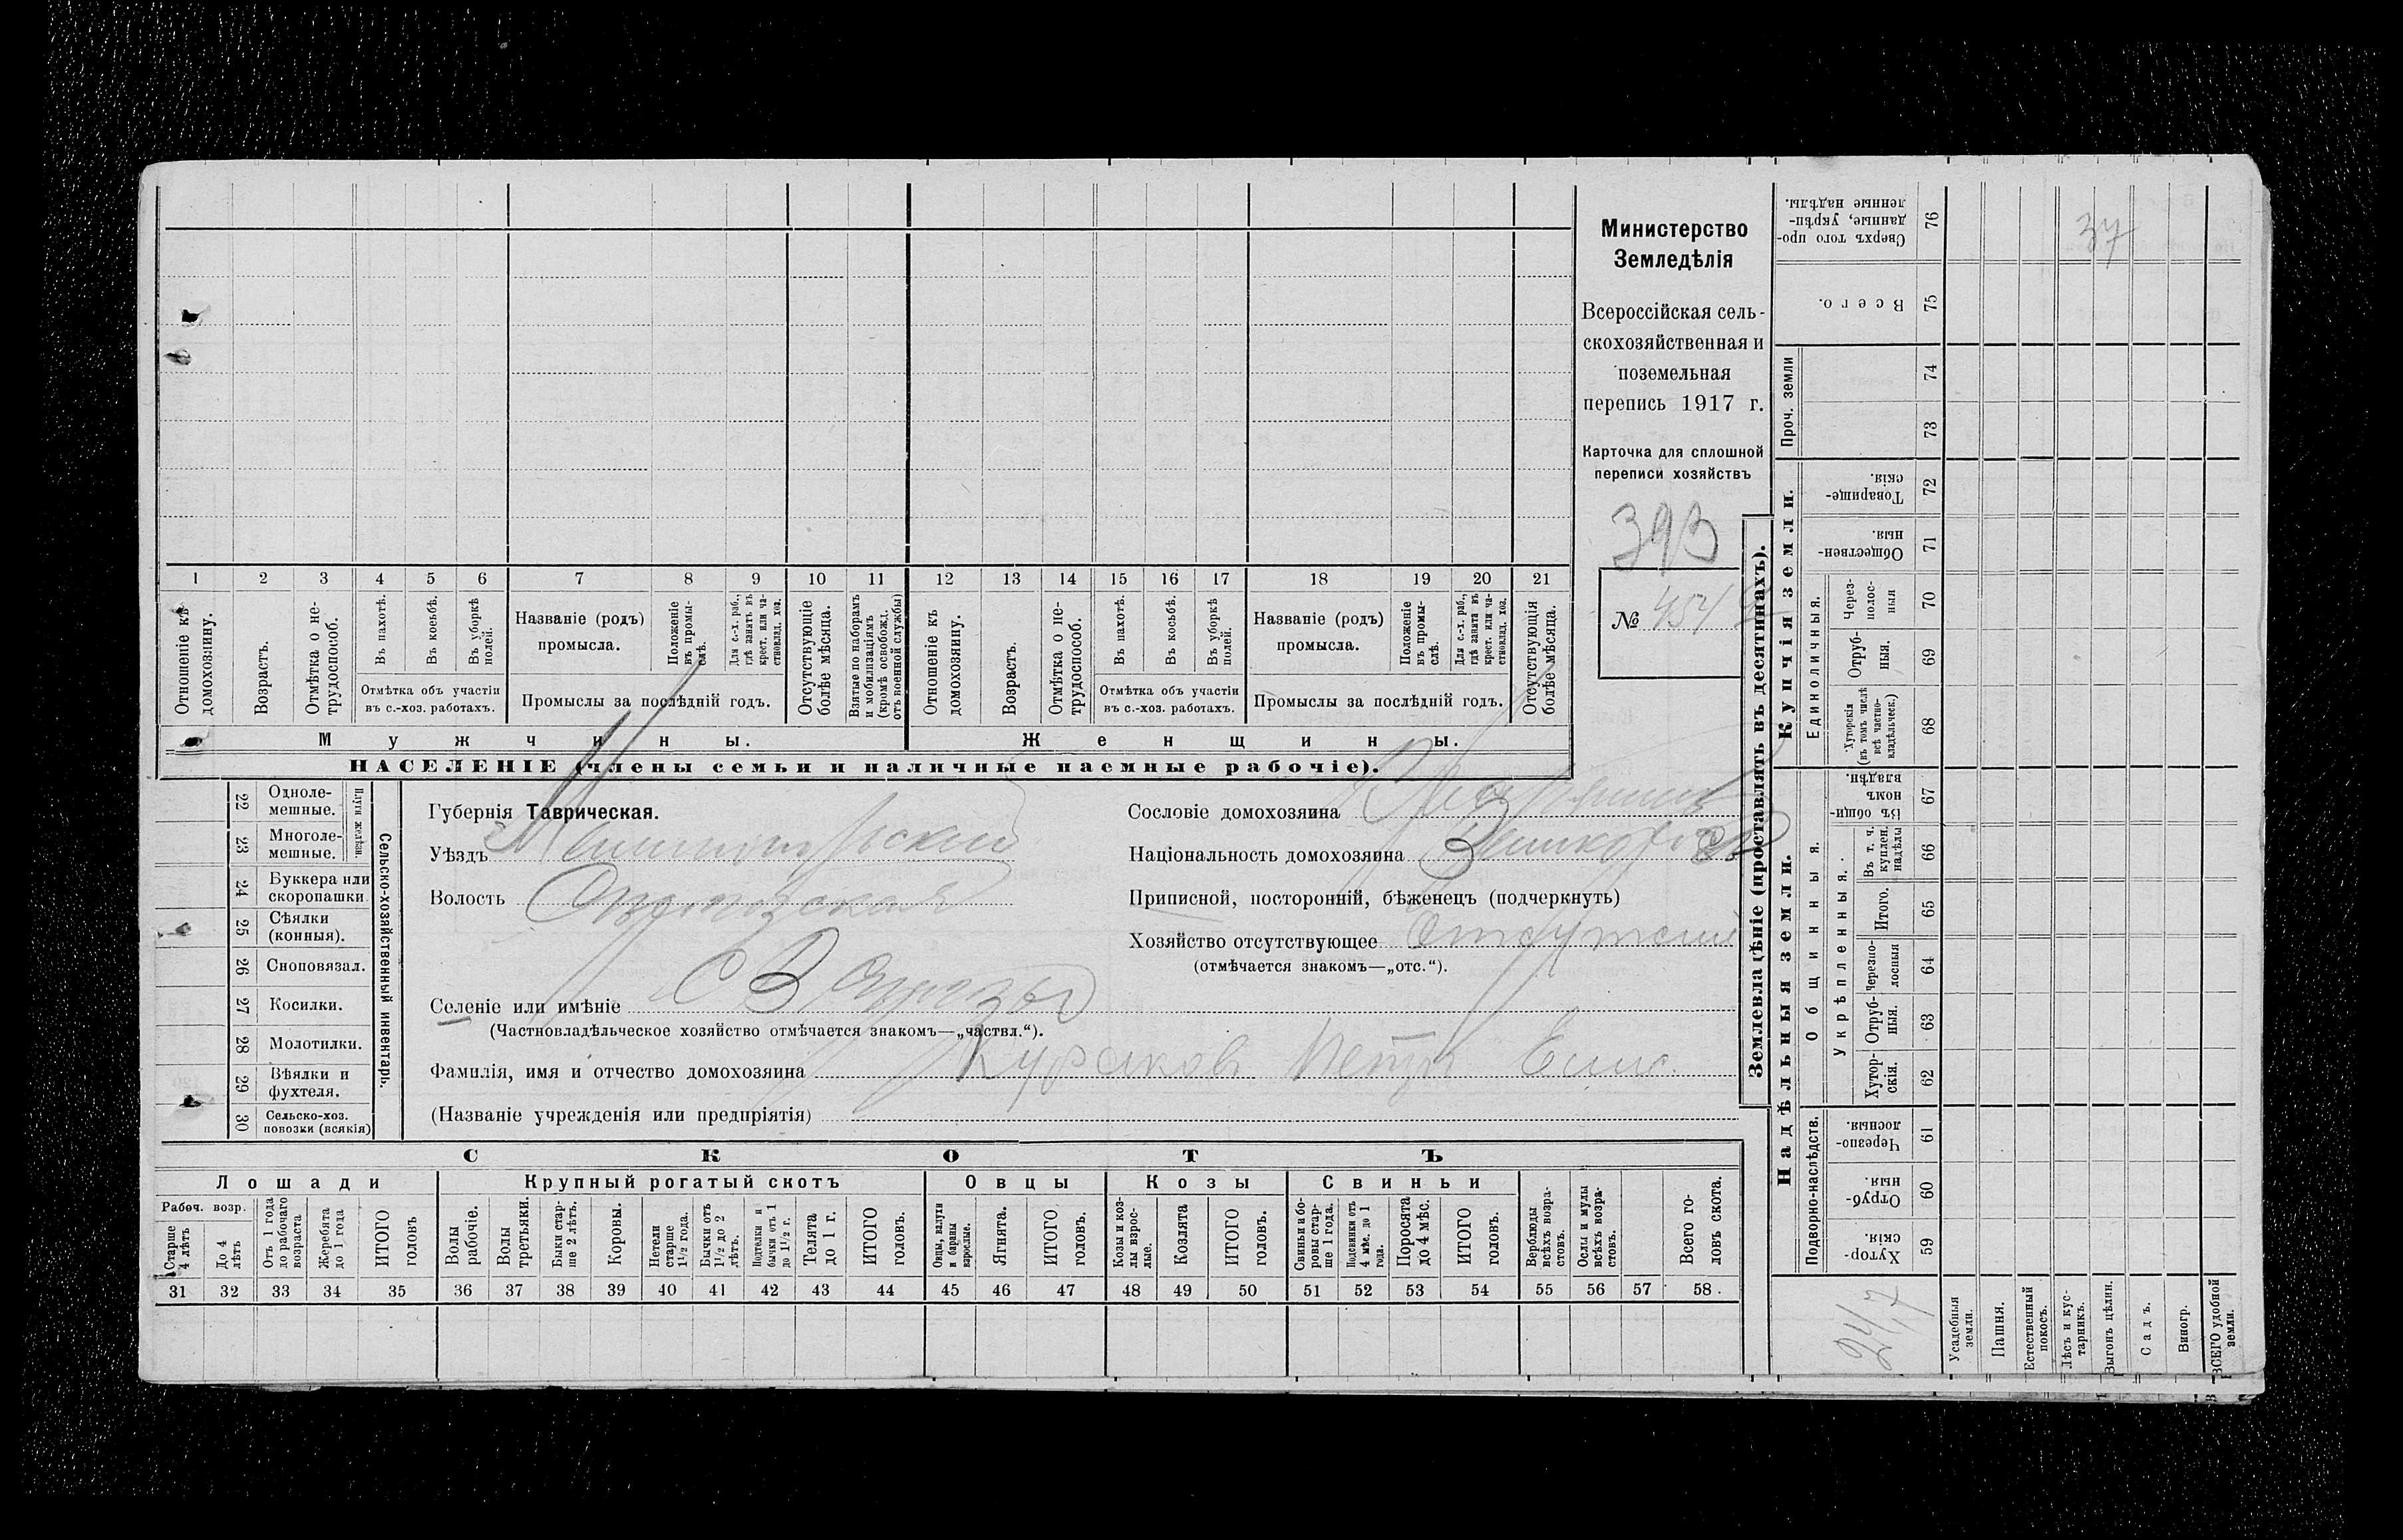 Министерство
Земледѣлія
Всероссійская сель-
скохозяйственная и
поземельная
перепись 1917 г.
Карточка для сплошной
переписи хозяйствъ
393
№ 454
1 2 3 4 5 6 7 8 9 10 11 12 13 14 15 16 17 18 19 20 21
Отношеніе къ домохозяину.
Возрастъ.
Отмѣтка о не-трудоспособ.
Въ пахотѣ.
Въ косьбѣ.
Въ уборкѣ полей.
Отмѣтка объ участіи въ с.-хоз. работахъ.
Названіе (родъ) промысла.
Положеніе въ промы-слѣ.
Для с.-х. раб., гдѣ занятъ въ крест. или ча-стновлад. хоз.
Промыслы за послѣдній годъ.
Отсутствующіе болѣе мѣсяца.
Взятые по наборамъ и мобилизаціямъ (кромѣ освобожд. отъ военной службы)
Отношеніе къ домохозяину.
Возрастъ.
Отмѣтка о не-трудоспособ.
Въ пахотѣ.
Въ косьбѣ.
Въ уборкѣ полей.
Отмѣтка объ участіи въ с.-хоз. работахъ.
Названіе (родъ) промысла.
Положеніе въ промы-слѣ.
Для с.-х. раб., гдѣ занята въ крест. или ча-стновлад. хоз.
Промыслы за послѣдній годъ.
Отсутствующія болѣе мѣсяца.
Мужчины. Женщины.
НАСЕЛЕНІЕ (члены семьи и наличные наемные рабочіе).
22 Одноле-мешные.
Плуги желѣзн.
23 Многоле-мешные.
24 Буккера или скоропашки
25 Сѣялки (конныя).
26 Сноповязал.
27 Косилки.
28 Молотилки.
29 Вѣялки и фухтеля.
30 Сельско-хоз. повозки (всякія)
Сельско-хозяйственный инвентарь.
Губернія Таврическая.
Уѣздъ
Волость
Селеніе или имѣніе
(Частновладѣльческое хозяйство отмѣчается знакомъ—„частвл.“).
Фамилія, имя и отчество домохозяина Петръ
(Названіе учрежденія или предпріятія)
Сословіе домохозяина
Національность домохозяина
Приписной, посторонній, бѣженецъ (подчеркнуть)
Хозяйство отсутствующее
(отмѣчается знакомъ—„отс.“).
СКОТЪ
Лошади Крупный рогатый скотъ Овцы Козы Свиньи
Рабоч. возр.
Старше 4 лѣтъ
До 4 лѣтъ
Отъ 1 года до рабочаго возраста
Жеребята до 1 года
ИТОГО головъ
Волы рабочіе.
Волы третьяки.
Быки стар-ше 2 лѣтъ.
Коровы.
Нетели старше 1½ года.
Бычки отъ 1½ до 2 лѣтъ.
Подтелки и бычки отъ 1 до 1½ г.
Телята до 1 г.
ИТОГО головъ.
Овцы, валухи и бараны взрослые.
Ягнята.
ИТОГО головъ.
Козы и коз-лы взрос-лые.
Козлята
ИТОГО головъ.
Свиньи и бо-ровы стар-ше 1 года.
Подсвинки отъ 4 мѣс. до 1 года.
Поросята до 4 мѣс.
ИТОГО головъ.
Верблюды всѣхъ возра-стовъ.
Ослы и мулы всѣхъ возра-стовъ.
Всего го-ловъ скота.
31 32 33 34 35 36 37 38 39 40 41 42 43 44 45 46 47 48 49 50 51 52 53 54 55 56 57 58.
Землевладѣніе (проставлять въ десятинахъ).
Надѣльныя земли. Купчія земли. Проч. земли
Подворно-наслѣдств.
Общинныя.
Укрѣпленныя.
Единоличныя.
Сверхъ того про-данные, укрѣп-ленные надѣлы. 76
Всего. 75
74
73
Товарище-скія. 72
Обществен-ныя. 71
Через-полос-ныя 70
Отруб-ныя. 69
Хуторскія (въ томъ числѣ всѣ частно-владѣльческ.) 68
Въ общи-номъ владѣн. 67
Въ т. ч. куплен. надѣлы 66
Итого. 65
Черезпо-лосныя 64
Отруб-ныя. 63
Хутор-скія. 62
Черезпо-лосныя. 61
Отруб-ныя. 60
Хутор-скія. 59
Усадебныя земли.
Пашня.
Естественный покосъ.
Лѣсъ и кус-тарникъ.
Выгонъ цѣлин.
Садъ.
Виногр.
ВСЕГО удобной земли.
37